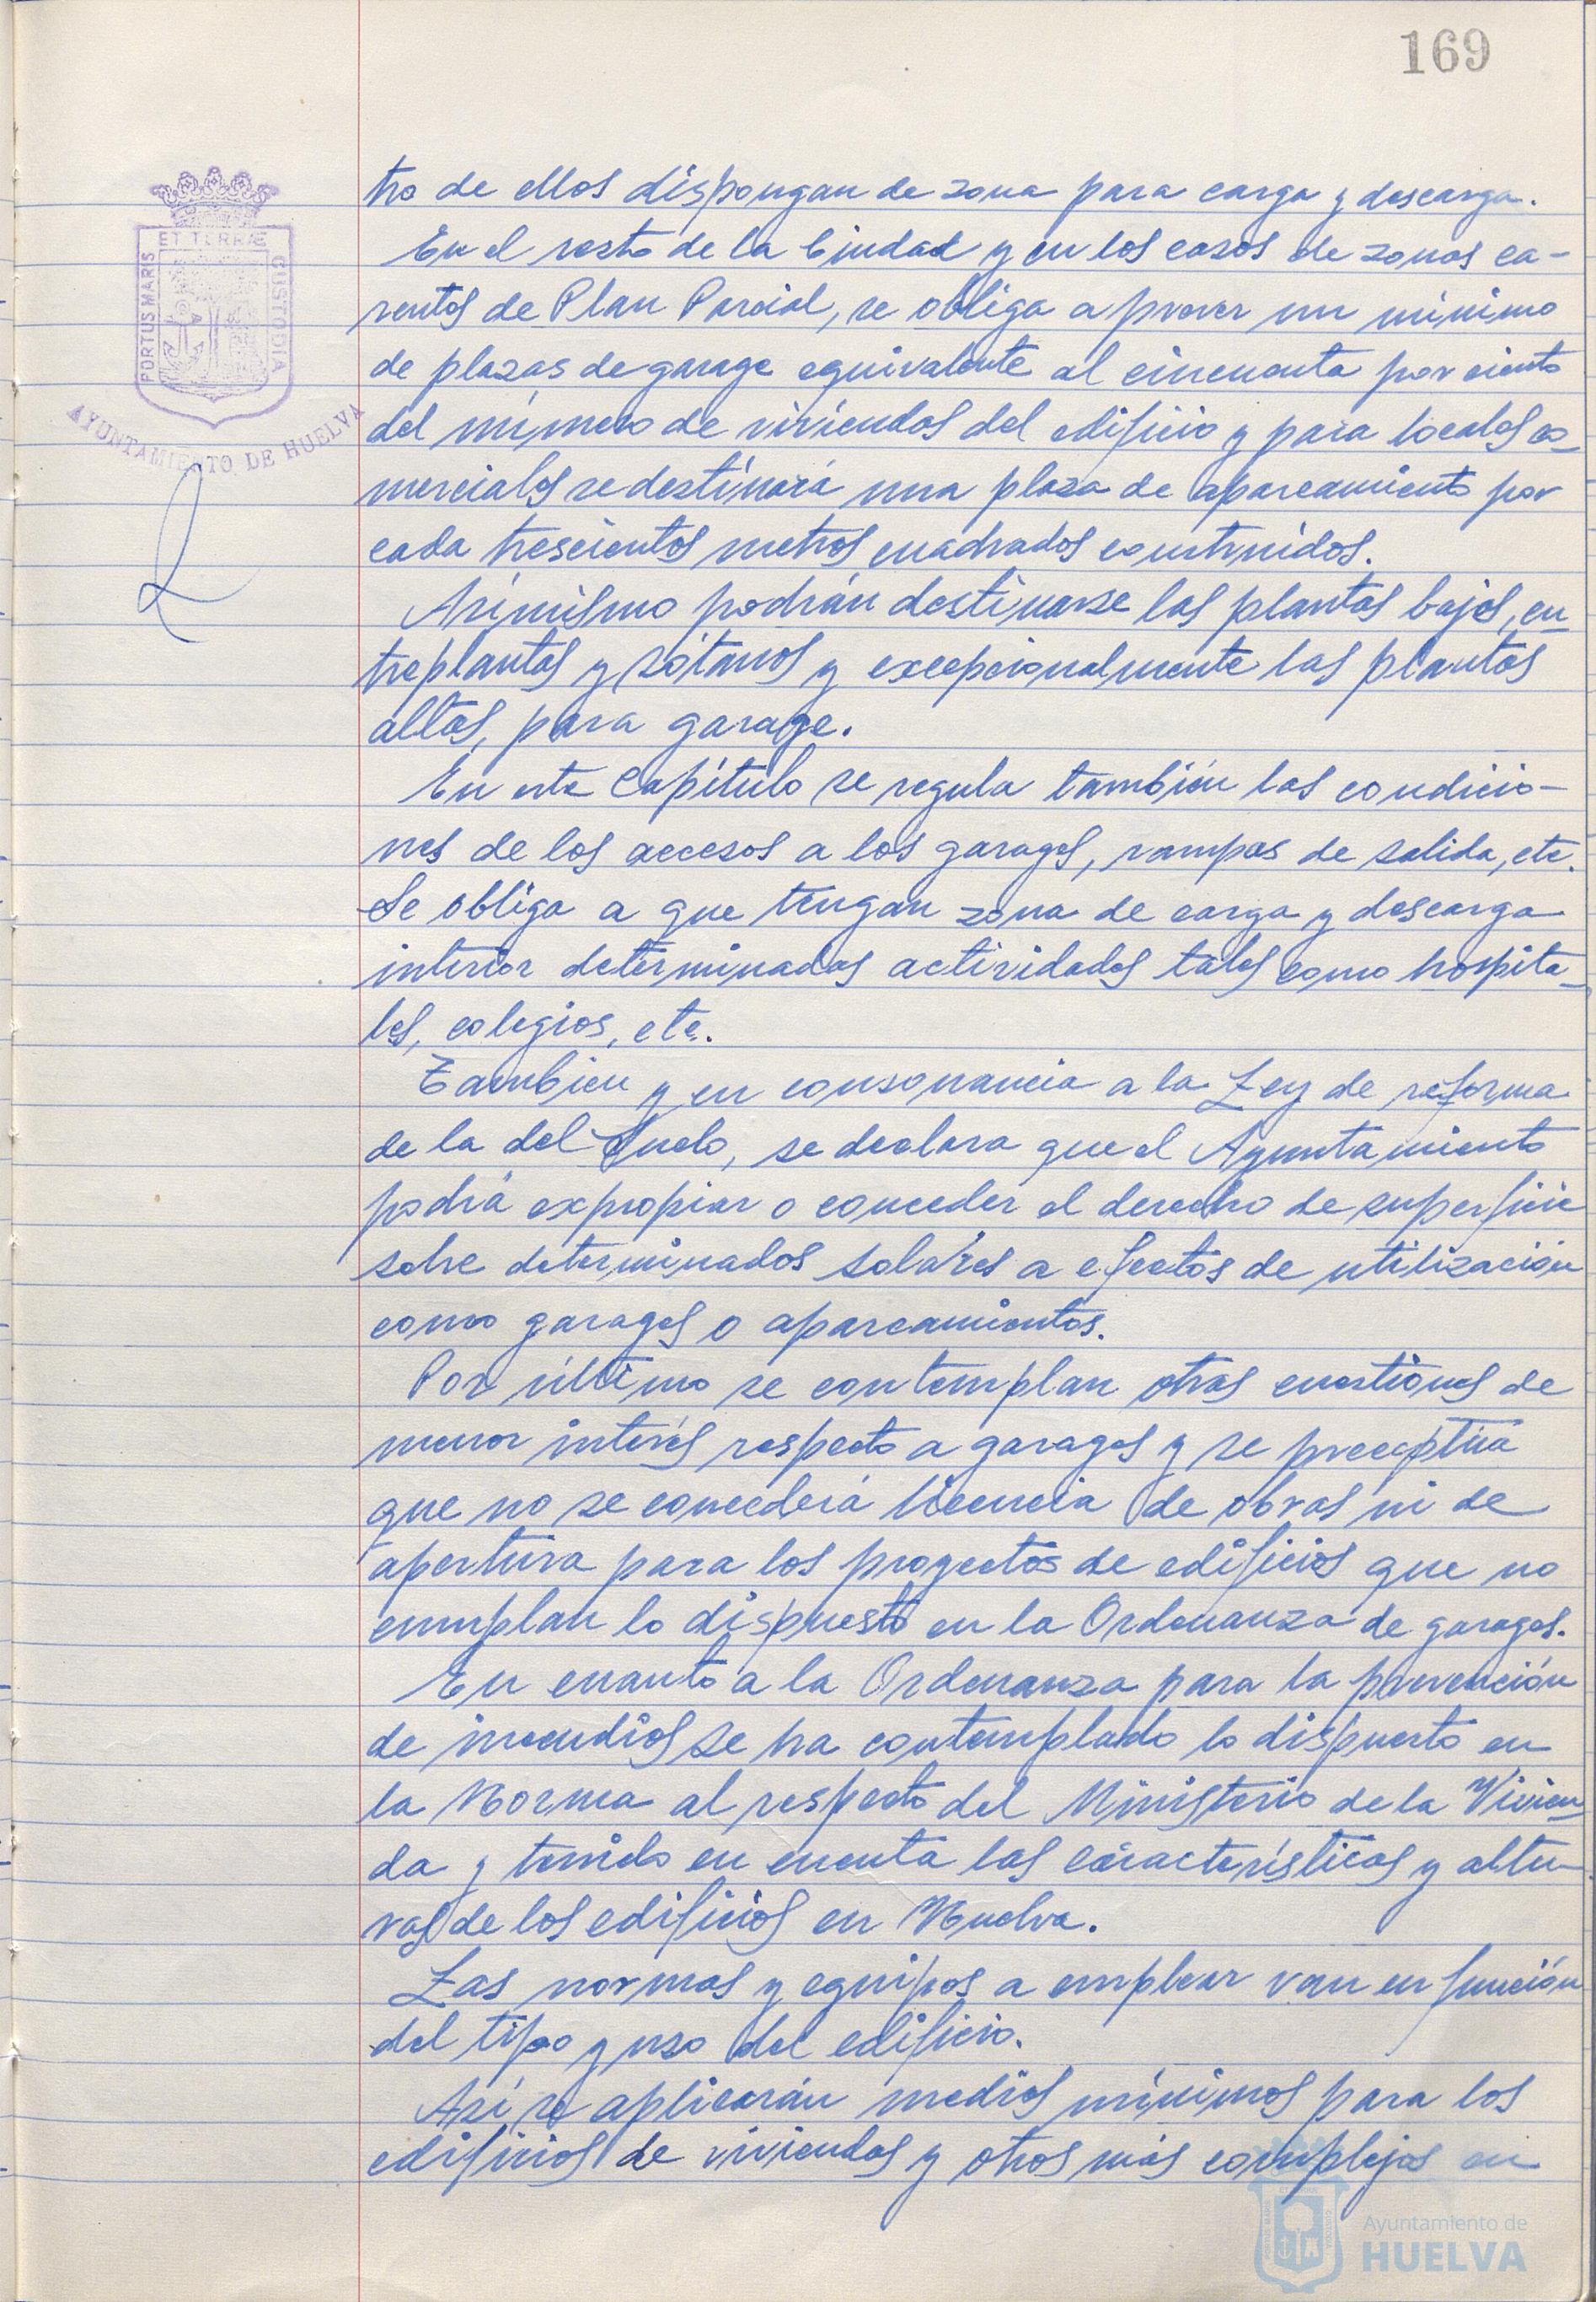 169
PORTUS MARIS
ET TERRÆ
CUSTODIA
AYUNTAMIENTO DE HUELVA
tro de ellos dispongan de zona para carga y descarga.
En el resto de la Ciudad y en los casos de zonas ca-
rentes de Plan Parcial, se obliga a prever un mínimo
de plazas de garage equivalente al cincuenta por ciento
del número de viviendas del edificio y para locales co-
merciales se destinará una plaza de aparcamiento por
cada trescientos metros cuadrados construidos.
Asímismo podrán destinarse las plantas bajas, en-
treplantas y sótanos y excepcionalmente las plantas
altas, para garage.
En este Capítulo se regula también las condicio-
nes de los accesos a los garages, rampas de salida, etc.
Se obliga a que tengan zona de carga y descarga
interior determinadas actividades tales como hospita-
les, colegios, etc.
Tambien y en consonancia a la Ley de reforma
de la del Suelo, se declara que el Ayuntamiento
podrá expropiar o conceder el derecho de superficie
sobre determinados solares a efectos de utilización
como garages o aparcamientos.
Por último se contemplan otras cuestiones de
menor interés respecto a garages y se preceptúa
que no se concederá licencia de obras ni de
apertura para los proyectos de edificios que no
cumplan lo dispuesto en la Ordenanza de garages.
En cuanto a la Ordenanza para la prevención
de incendios se ha contemplado lo dispuesto en
la Norma al respecto del Ministerio de la Vivien-
da y tenido en cuenta las características y altu-
ras de los edificios en Huelva.
Las normas y equipos a emplear van en función
del tipo y uso del edificio.
Así se aplicarán medios mínimos para los
edificios de viviendas y otros más complejos en
Ayuntamiento de
HUELVA